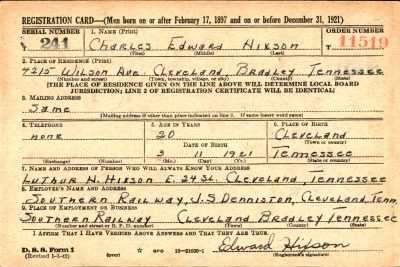 REGISTRATION CARD—(Men born on or after February 17, 1897 and on or before December 31, 1921)
SERIAL NUMBER 1. NAME (Print) ORDER NUMBER
T 241 Charles Edward Hixson T 11519
(First) (Middle) (Last)
2. PLACE OF RESIDENCE (Print)
4215 Wilson Ave Cleveland Bradley Tennessee
(Number and street) (Town, township, village, or city) (County) (State)
[THE PLACE OF RESIDENCE GIVEN ON THE LINE ABOVE WILL DETERMINE LOCAL BOARD
JURISDICTION; LINE 2 OF REGISTRATION CERTIFICATE WILL BE IDENTICAL]
3. MAILING ADDRESS
Same
[Mailing address if other than place indicated on line 2. If same insert word same]
4. TELEPHONE 5. AGE IN YEARS 6. PLACE OF BIRTH
none 20 Cleveland
DATE OF BIRTH (Town or county)
3 11 1921 Tennessee
(Exchange) (Number) (Mo.) (Day) (Yr.) (State or country)
7. NAME AND ADDRESS OF PERSON WHO WILL ALWAYS KNOW YOUR ADDRESS
H. Hixson E. 24 St. Cleveland, Tennessee
8. EMPLOYER'S NAME AND ADDRESS
Southern Railway, J.S. Denniston, Cleveland, Tenn.
9. PLACE OF EMPLOYMENT OR BUSINESS
Southern Railway Cleveland Bradley Tennessee
(Number and street or R. F. D. number) (Town) (County) (State)
I AFFIRM THAT I HAVE VERIFIED ABOVE ANSWERS AND THAT THEY ARE TRUE.
D. S. S. Form 1 GPO 16—21630-1 Edward Hixson
(Revised 1-1-42) (Registrant's signature)